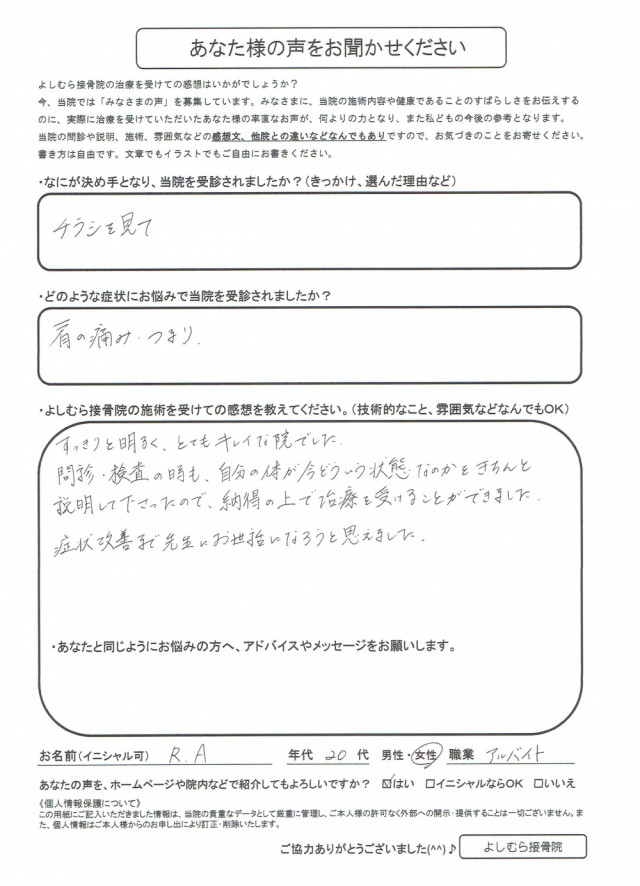 あなた様の声をお聞かせください
よしむら接骨院の治療を受けての感想はいかがでしょうか？
今、当院では「みなさまの声」を募集しています。みなさまに、当院の施術内容や健康であることのすばらしさをお伝えする
のに、実際に治療を受けていただいたあなた様の率直なお声が、何よりの力となり、また私どもの今後の参考となります。
当院の問診や説明、施術、雰囲気などの感想文、他院との違いなどなんでもありですので、お気づきのことをお寄せください。
書き方は自由です。文章でもイラストでもご自由にお書きください。
・なにが決め手となり、当院を受診されましたか？（きっかけ、選んだ理由など）
チラシを見て
・どのような症状にお悩みで当院を受診されましたか？
肩の痛み・つまり.
・よしむら接骨院の施術を受けての感想を教えてください。（技術的なこと、雰囲気などなんでもOK）
すっきりと明るく、とてもキレイな院でした.
問診・検査の時も、自分の体が今どういう状態なのかをきちんと
説明して下さったので、納得の上で治療を受けることができました.
症状改善まで先生にお世話になろうと思えました.
・あなたと同じようにお悩みの方へ、アドバイスやメッセージをお願いします。
お名前（イニシャル可） R.A 年代 20 代 男性・女性 職業 アルバイト
あなたの声を、ホームページや院内などで紹介してもよろしいですか？ ☑はい □イニシャルならOK □いいえ
《個人情報保護について》
この用紙にご記入いただきました情報は、当院の貴重なデータとして厳重に管理し、ご本人様の許可なく外部への開示・提供することは一切ございません。ま
た、個人情報はご本人様からのお申し出により訂正・削除いたします。
ご協力ありがとうございました(^^)♪ よしむら接骨院